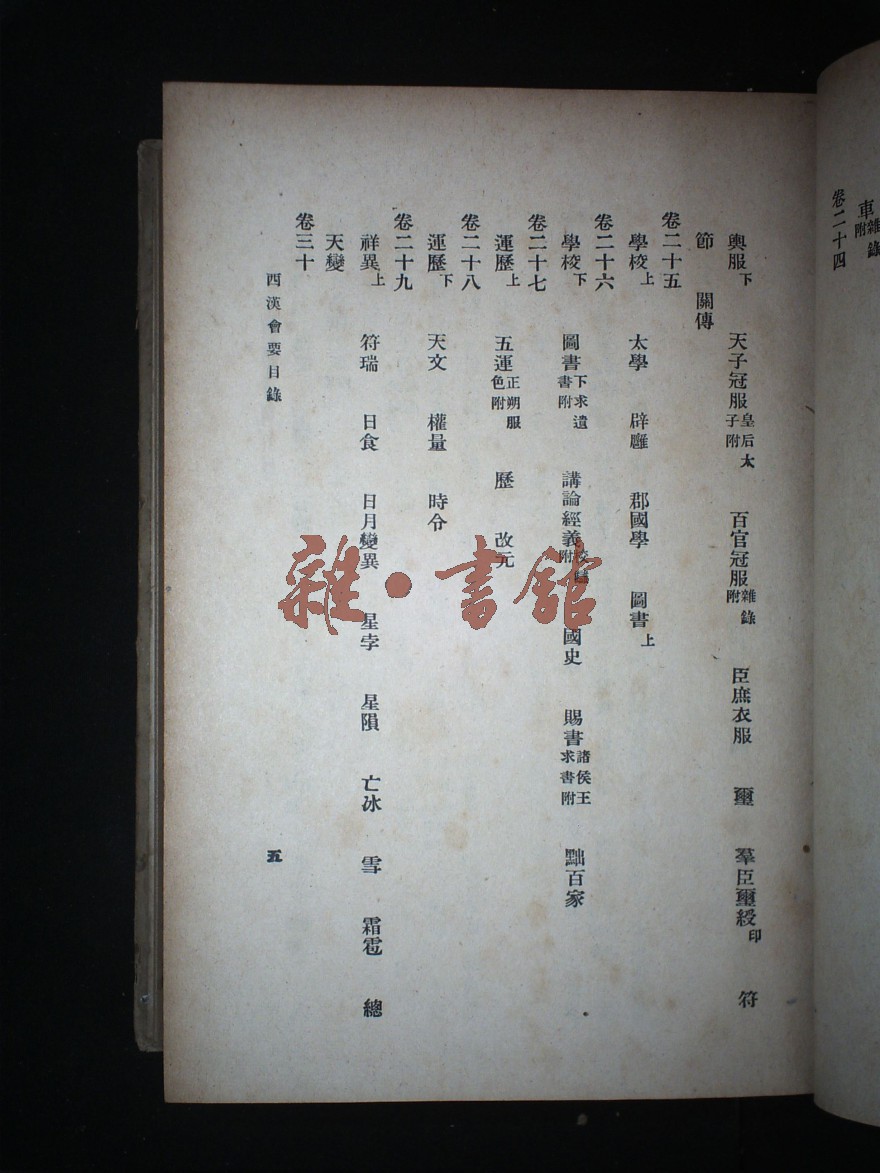 車雜錄附
卷二十四
輿服下 天子冠服皇后太子附 百官冠服雜錄附 臣庶衣服 璽 羣臣璽綬印 符
節 關傳
卷二十五
學校上 太學 辟廱 郡國學 圖書上
卷二十六
學校下 圖書下求遺書附 講論經義附 國史 賜書諸侯王求書附 黜百家
卷二十七
運歷上 五運正朔服色附 歷 改元
卷二十八
運歷下 天文 權量 時令
卷二十九
祥異上 符瑞 日食 日月變異 星孛 星隕 亡冰 雪 霜雹 總
天變
卷三十
西漢會要目錄
五
雜·書館